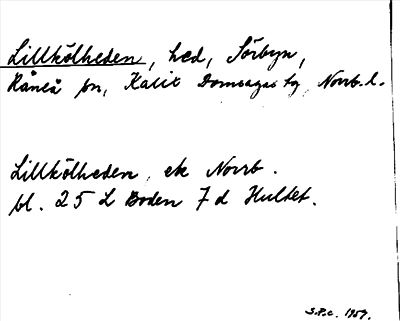 Lillkölheden, hed, Sörbyn,
Råneå sn, Kalix Domsagas tg, Norrb. l.
Lillkölheden, ek Norrb.
bl. 25 L Boden 7 d Hultet.
S.P.C. 1959.